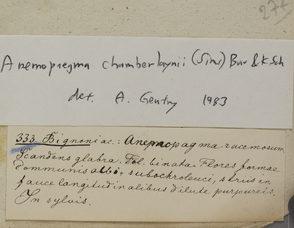 277
Anemopaegma chamberlaynii (Sims) Bur & K.Sch
det. A. Gentry 1983
333. Bignoniac.: Anemopagma racemosum
Scandens glabra. Fol. binata. Flores formae
communis albi, subochroleuci, striis in
fauce longitudinalibus dilute purpureis.
In sylvis.